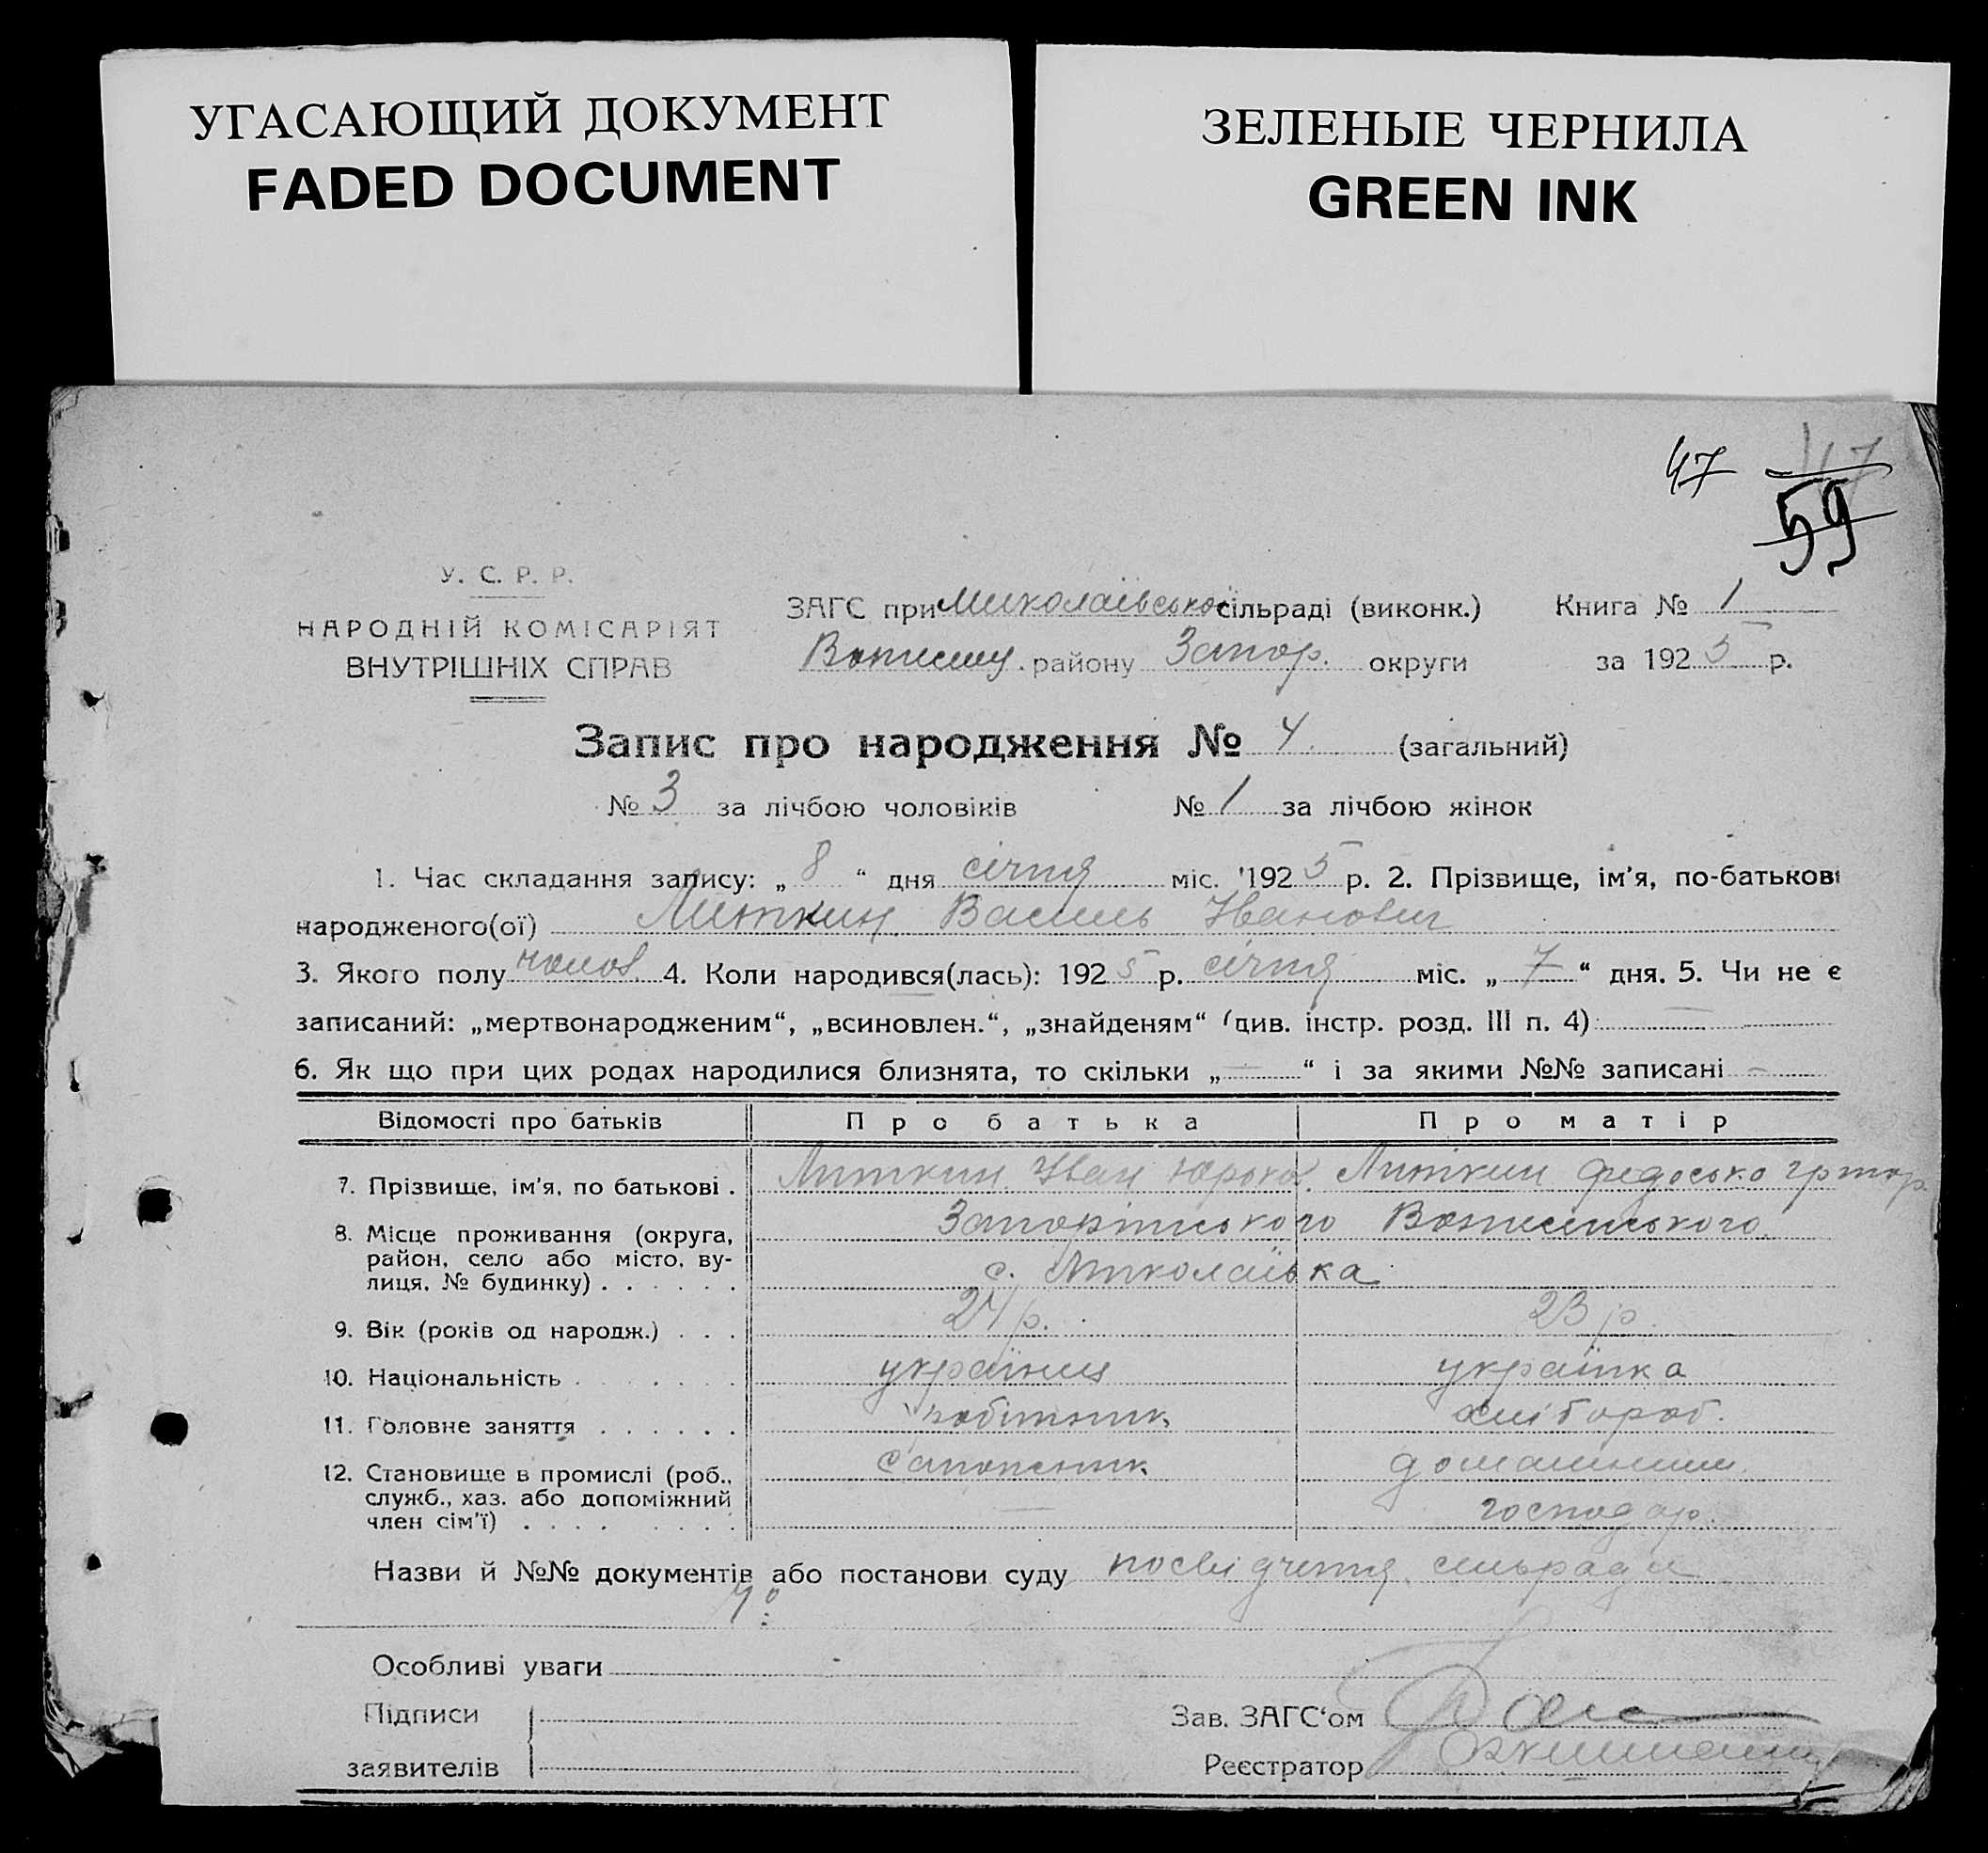 УГАСАЮЩИЙ ДОКУМЕНТ
FADED DOCUMENT
ЗЕЛЕНЫЕ ЧЕРНИЛА
GREEN INK
47 47
59
У. С. Р. Р.
НАРОДНІЙ КОМІСАРІЯТ
ВНУТРІШНІХ СПРАВ
ЗАГС при Миколаївської сільраді (виконк.) Книга № 1
району Запор. округи за 1925 р.
Запис про народження № 4. (загальний)
№ 3 за лічбою чоловіків № 1 за лічбою жінок
1. Час складання запису: „ 8 “ дня січня міс. 1925 р. 2. Прізвище, ім'я, по-батькові
народженого(ої) Литкин Василь Іванович
3. Якого полу чолов. 4. Коли народився(лась): 1925 р. січня міс. „ 7 “ дня. 5. Чи не є
записаний: „мертвонародженим“, „всиновлен.“, „знайденям“ (див. інстр. розд. III п. 4) —
6. Як що при цих родах народилися близнята, то скільки „ — “ і за якими №№ записані —
Відомості про батьків Про батька Про матір
7. Прізвище, ім'я, по батькові . Литкин Іван Юрков. Литкин Федоська
8. Місце проживання (округа, Запоріжського
район, село або місто, ву-
лиця, № будинку) . . . . . . с. Миколаївка
9. Вік (років од народж.) . . . 24 р. 23 р.
10. Національність . . . . . . . українец українка
11. Головне заняття . . . . . . робітник хлібороб.
12. Становище в промислі (роб., сапожник домашнім
служб., хаз. або допоміжний — господар.
член сім'ї) . . . . . . . .
Назви й №№ документів або постанови суду посвідчення сільради
Особливі уваги
Підписи
заявителів
Зав. ЗАГС‘ом
Реєстратор